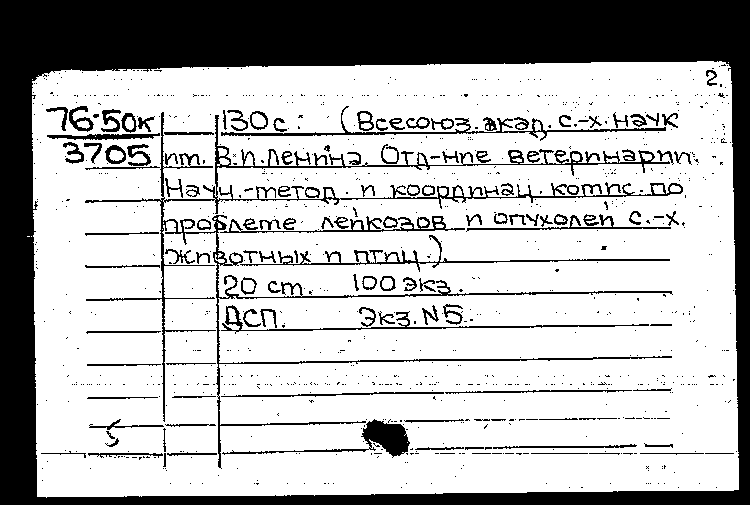 2.
76-50к 130 с. (Всесоюз. акад. с.-х. наук
3705 им. В.И. Ленина. Отд-ние ветеринарии.
Науч.-метод. и координац. комис. по
проблеме лейкозов и опухолей с.-х.
животных и птиц.).
20 см. 100 экз.
ДСП. Экз. N5.
5